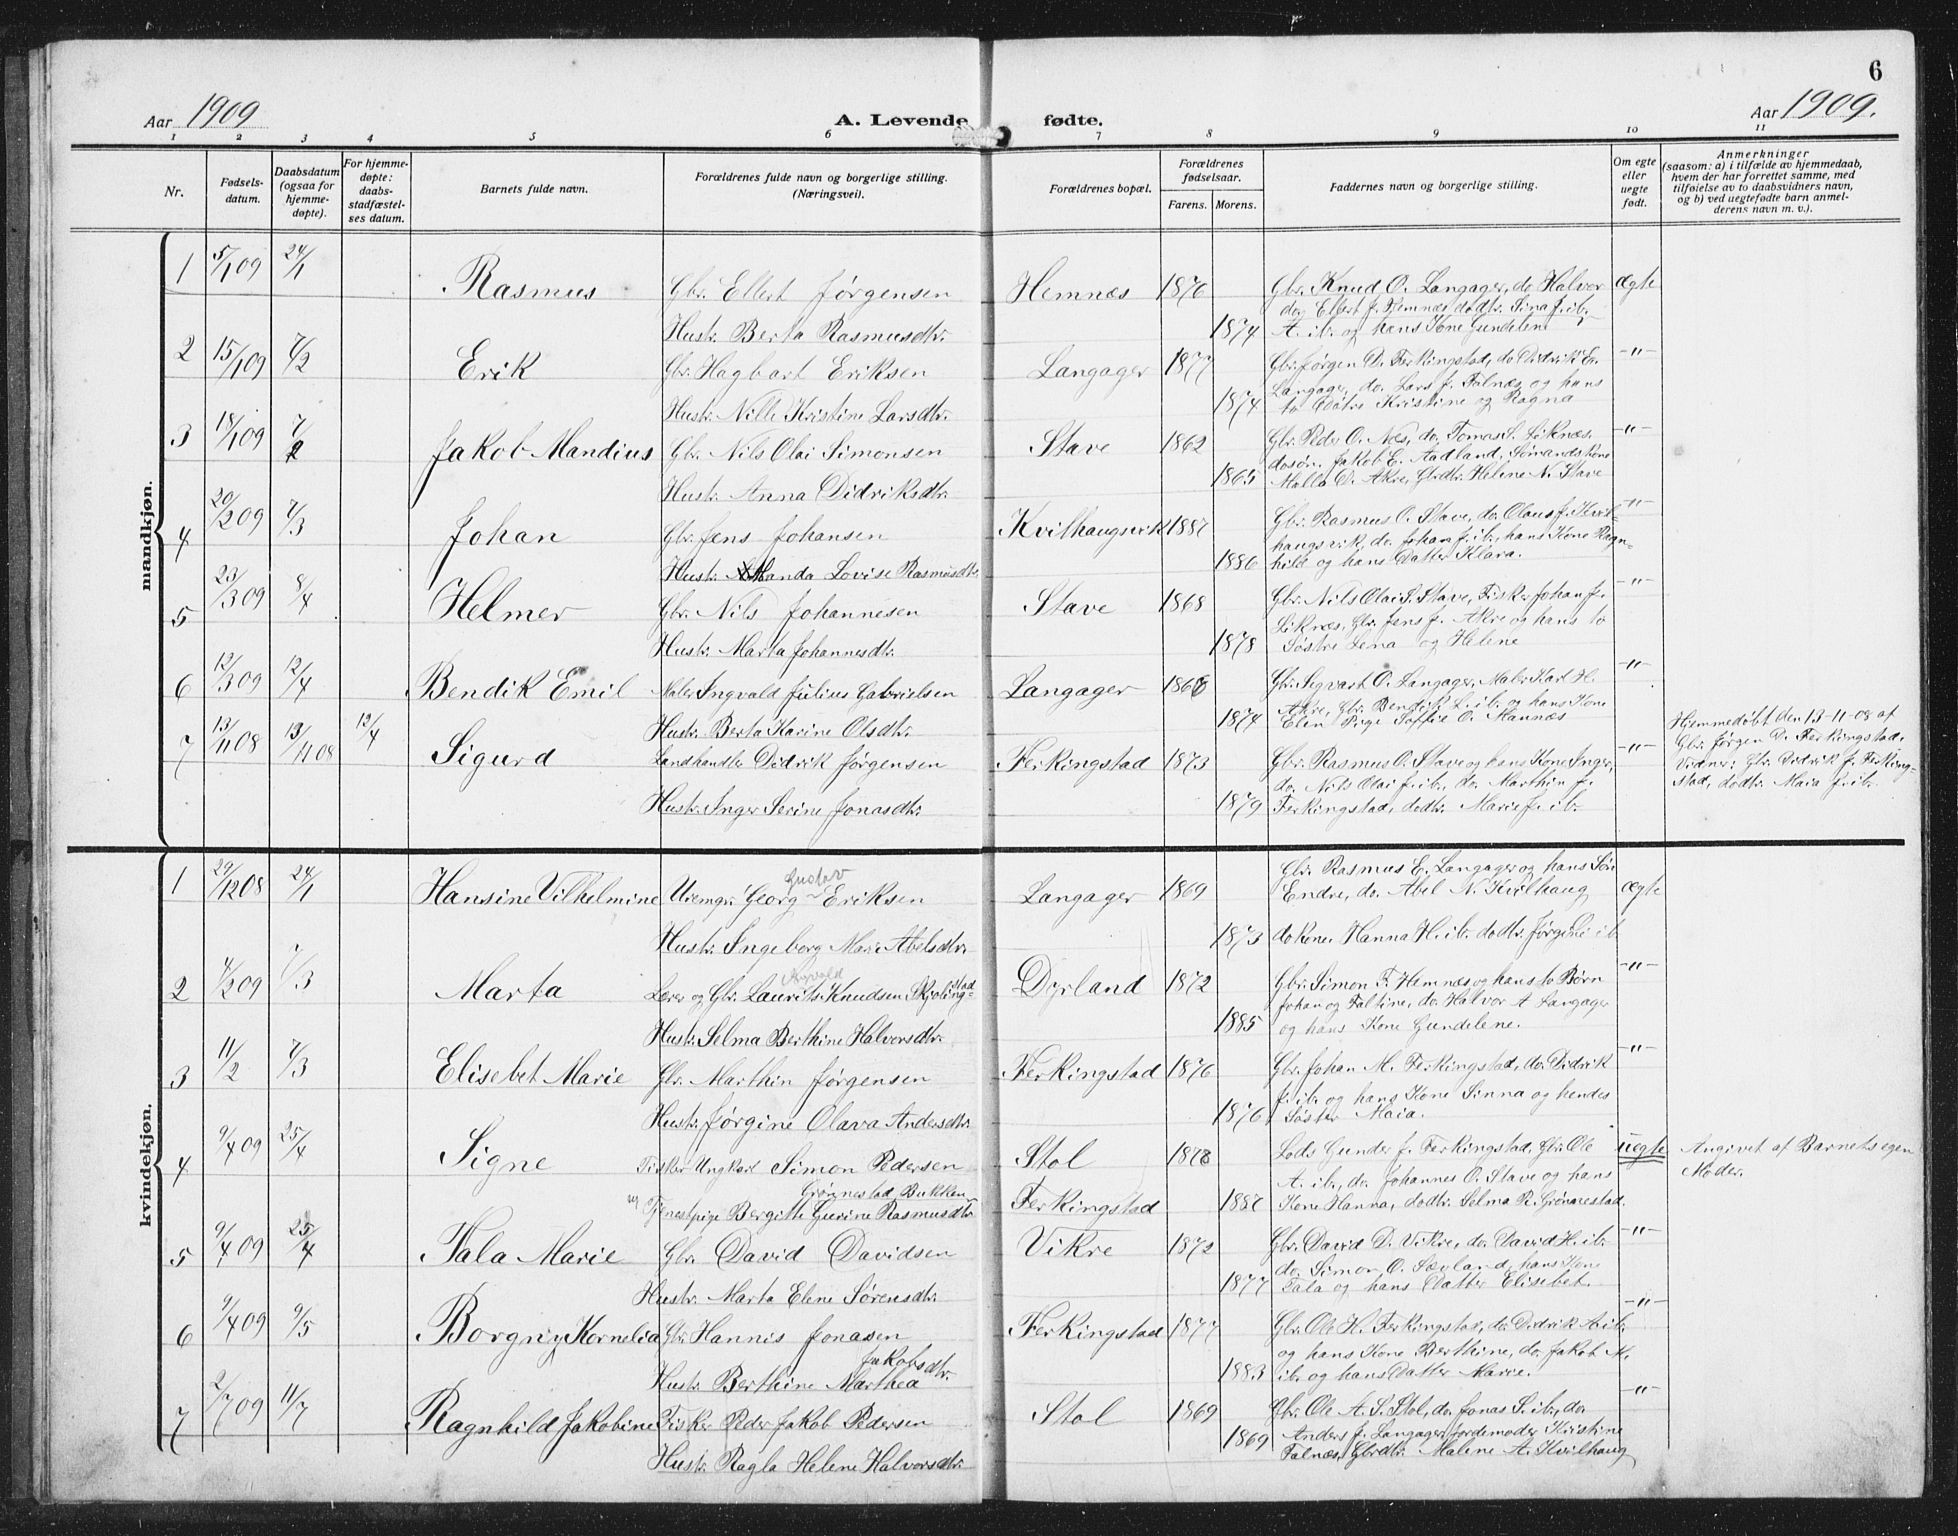 6
Aar 1909
A. Levende fødte.
Aar 1909.
1 2 3 4 5 6 7 8 9 10 11
Nr.
Fødsels-
datum.
Daabsdatum
(ogsaa for
hjemme-
døpte).
For hjemme-
døpte:
daabs-
stadfæstel-
ses datum.
Barnets fulde navn.
Forældrenes fulde navn og borgerlige stilling.
(Næringsvei).
Forældrenes bopæl.
Forældrenes
fødselsaar.
Farens. Morens.
Faddernes navn og borgerlige stilling.
Om egte
eller
uegte
født.
Anmerkninger
(saasom: a) i tilfælde av hjemmedaab,
hvem der har forrettet samme, med
tilføielse av to daabsvidners navn,
og b) ved uegtefødte barn anmel-
derens navn m. v.).
mandkjøn.
1 5/1 09 24/1 Rasmus Gbr. Ellert Jørgensen Hemnæs 1876 Gbr. Knud O. Langager, do Halvor ægte
do, Ellert J. Hemnæs dodtr. Sina J. ib.
Hustr. Berta Rasmusdtr. 1874 A. ib. og hans Kone Gundelene
2 15/1 09 7/2 Erik Gbr. Hagbart Eriksen Langager 1877 Gbr. Jørgen D. Ferkingstad, do Didrik E. -"-
Langager, do. Lars J. Falnæs og hans
Hustr. Nille Kristine Larsdtr. 1874 to Døtre Kristine og Ragna
3 18/1 09 7/2 Jakob Mandius Gbr. Nils Olai Simonsen Stave 1862 Gbr. Peder O. Næs, do. Tomas S. Liknæs. -"-
dosøn. Jakob E. Aadland, Sømandskone
Hustr. Anna Didriksdtr. 1865 Malla D. Akre, Gbrdtr. Helene N. Stave
4 20/2 09 7/3 Johan Gbr. Jens Johansen Kvilhaugsvik 1887 Gbr. Rasmus O. Stave, do. Olaus J. Kvil- -"-
haugsvik, do. Johan J. ib., hans Kone Ragn-
Hustr. Amanda Lovise Rasmusdtr. 1886 hild og hans Datter Klara.
5 23/3 09 8/4 Helmer Gbr. Nils Johannesen Stave 1868 Gbr. Nils Olai S. Stave, Fisker Johan J. -"-
Liknæs, Gbr. Jens J. Akre og hans to
Hustr. Marta Johannesdtr. 1878 Søstre Lena og Helene
6 12/3 09 12/4 Bendik Emil Maler Ingvald Julius Gabrielsen Langager 1868 Gbr. Sigvart O. Langager, Maler Karl H. -"-
Akre, Gbr. Bendik L. ib. og hans Kone
Hustr. Berta Karine Olsdtr. 1874 Elen Pige Soffie O. Mannæs
7 13/11 08 13/11 08 12/4 Sigurd Landhandler Didrik Jørgensen Ferkingstad 1873 Gbr. Rasmus O. Stave og hans Kone Inger, -"-
do. Nils Olai J. ib., do. Marthin J.
Hustr. Inger Serine Jonasdtr. 1879 Ferkingstad, dodtr. Marie J. ib.
Hjemmedøbt den 13-11-08 af
Gbr. Jørgen D. Ferkingstad.
Vidner: Gbr. Didrik J. Ferking-
stad, dodtr. Maia J. ib.
kvindekjøn.
1 29/12 08 24/1 Hansine Vilhelmine Uremgr. Georg Gustav Eriksen Langager 1869 Gbr. Rasmus E. Langager og hans Søn ægte
Endre, do. Abel N. Kvilhaug
Hustr. Ingeborg Marie Abelsdtr. 1873 dokone. Hanna H. ib. dodtr. Jørgine ib.
2 4/2 09 7/3 Marta Lærer og Gbr. Laurits Knudsen Skjøling-
stad Dyrland 1872 Gbr. Simon F. Hemnæs og hans to Børn -"-
Johan og Faltine, do. Halvor A Langager
Hustr. Selma Berthine Halvorsdtr. 1885 og hans Kone Gundelene.
3 11/2 7/3 Elisebet Marie Gbr. Marthin Jørgensen Ferkingstad 1876 Gbr. Johan M. Ferkingstad, do. Didrik -"-
J. ib. og hans Kone Sinna og hendes
Hustr. Jørgine Olava Andersdtr. 1876 Søster Maia.
4 9/4 09 25/4 Signe Fisker Ungkarl Simon Pedersen Stol 1878 Lods Gunder J. Ferkingstad, Gbr. Ole uegte
Grønnestad, Bukken A. ib., do. Johannes O. Stave og hans
og Tjenestpige Bergitte Gurine Rasmusdtr. Ferkingstad 1887 Kone Hanna, dodtr. Selma R. Grønnestad.
Angivet af Barnets egen
Moder.
5 9/4 09 25/4 Tala Marie Gbr. David Davidsen Vikre 1872 Gbr. David D. Vikre, do. David H. ib. -"-
do. Simon O. Sævland, hans Kone
Hustr. Marta Elene Sørensdtr. 1877 Tala og hans Datter Elisebet.
6 9/4 09 9/5 Borgny Kornelia Gbr. Hannis Jonasen Ferkingstad 1877 Gbr. Ole H. Ferkingstad, do. Didrik A. ib. -"-
og hans Kone Berthine, do. Jakob M.
Hustr. Berthine Marthea Jakobsdtr. 1883 ib. og hans Datter Marie.
7 2/7 09 11/7 Ragnhild Jakobine Fisker Peder Jakob Pedersen Stol 1869 Gbr. Ole A. S. Stol, do. Jonas S. ib., do. -"-
Anders J. Langager, Jordemoder Kristine
Hustr. Ragla Helene Halvorsdtr. 1869 Falnæs, Gbrdtr. Malene A. Kvilhaug